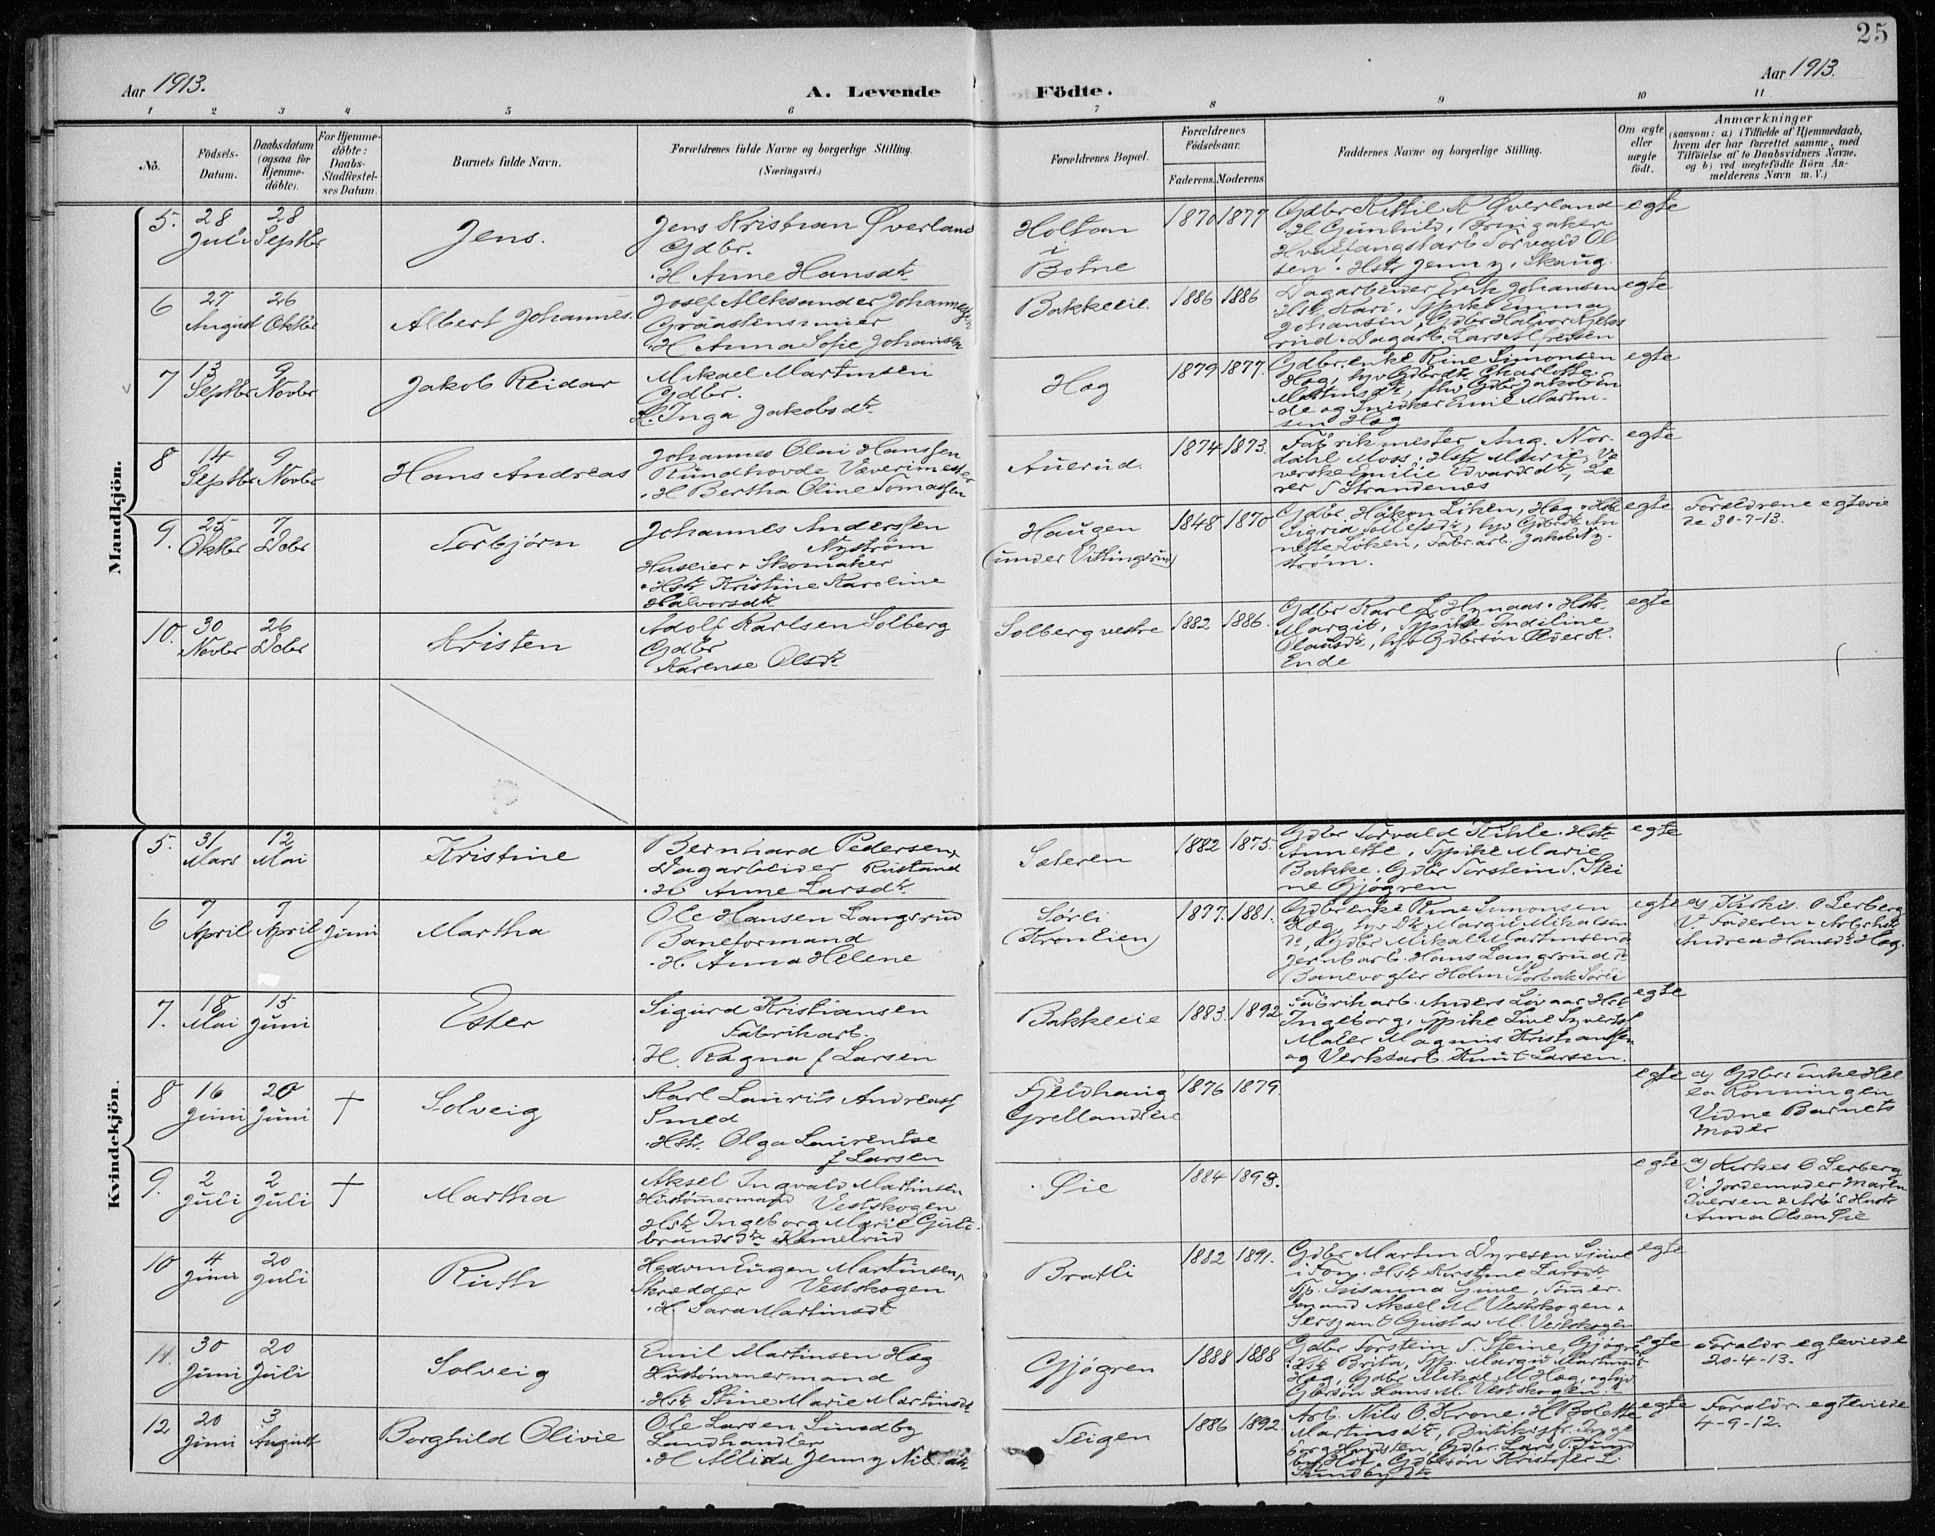 25
Aar 1913.
A. Levende
Födte.
Aar 1913.
1 2 3 4 5 6 7 8 9 10 11
No.
Födsels-Datum.
Daabsdatum (ogsaa for Hjemmedöbte).
For Hjemmedöbte: Daabs-Stadfæstelses Datum.
Barnets fulde Navn.
Forældrenes fulde Navne og borgerlige Stilling. (Næringsvei.)
Forældrenes Bopæl.
Forældrenes Födselsaar.
Faderens. Moderens.
Faddernes Navne og borgerlige Stilling.
Om ægte eller uægte födt.
Anmærkninger
(saasom: a) i Tilfælde af Hjemmedaab, hvem der har forrettet samme, med Tilföielse af to Daabsvidners Navne, og b) ved uægtefödte Börn Anmelderens Navn m. V.)
Mandkjön.
5. 28 Juli 28 Septbr Jens.
Jens Kristian Øverland
Gdbr.
H Anne Hansdtr
Holtan
i
Botne
1870 1877
Gdbr Kittil K Øverland
H Gunhild, Bringaker
Hvalfangstarb Torvald Ol
sen. Hstr Jenny, Skaug.
egte
6 27 August 26 Oktbr Albert Johannes.
Josef Aleksander Johannessen
Graastensminer
H Anna Sofie Johansen
Bakkeeie.
1886 1886
Dagarbeider Erik Johansen
Hst Kari, Ppike Emma
Johansen, Gdbr Halvor
rud. Dagarb. Lars Alfredsen
egte
7 13 Septbr 9 Novbr Jakob Reidar
Mikael Martinsen
Gdbr.
H. Inga Jakobsdtr
Hog
1879 1877.
Gdbr.enke Rine Simonsen
Høg, Gdbrdtr Charlotte
Martinsdtr, Gdbr Jakob
de og Snidker Emil Martin-
sen Høg
egte
8 14 Septbr 9 Novbr Hans Andreas
Johannes Olai Hanssen
Rundhovde Væverimester
H Bertha Oline Tomassen
Auerud.
1874 1873.
Fabrikmester Aug. Nor-
dahl Moss. Hstr Marie, Væ
verske Emilie Edvardsdtr, Læ
rer S Strandenæs
egte
9. 25 Oktbr 7 Debr Torbjørn
Johannes Anderssen
Nystrøm
Huseier & Skomaker
Hstr Kristine Karoline
Halvorsdtr
Haugen
(under Vittingsrud)
1848 1870
Gdbr. Håkon Løken, Høg Hstr
Sigrid Tollefsdtr, Gdbrdtr An
nette Løken, Fabr.arb. Jakob Ny-
strøm.
egte
Foraldrene egtevie
de 30-7-13.
10. 30 Novbr 26 Debr Kristen
Adolf Karlsen Solberg
Gdbr
Karense Olsdtr
Solberg vestre
1882 1886.
Gdbr Karl L Hynaas. Hstr.
Margit, Ppike Indiline
Olausdtr, Gdbrsøn Peder K.
Ende
egte
Kvindekjön.
5. 31 Mars 12 Mai Kristine
Bernhard Pedersen
Dagarbeider Rustand
H Anne Larsdtr
Sæteren
1882 1875.
Gdbr Torvald Kihle. Hstr
Annette, Ppike Marie
Bakke. Gdbr Torstein T. Stei
ne Gjøgren
egte
6 7 April 7 April 1 Juni Martha
Ole Hansen Langsrud
Baneformand
H. Anna Helene
Sørli
(Kronlien)
1877. 1881.
Gdbrenke Rine Simonsen
Høg, Dtr Margit Mikalsen
dtr, Gdbr Mikal Martinsen
jernbarb. Hans Langsrud
Banevogter Holm Sørli
egte
a) Kirkes. O Lerberg
V. Faderen & Arb.hstr
Andrea Hansdtr Høg.
7. 18 Mai 15 Juni Ester
Sigurd Kristiansen
Fabrikarb.
H. Ragna f Larsen
Bakkeeie
1883. 1892
Fabrikarb. Anders Lovaas Hst
Ingeborg, Ppike Line Syverts
Maler Magnus Kristiansen
og Verksarb. Knut Larsen.
egte
8 16 Juni 20 Juni † Solveig
Karl Laurits Andreass
Smed
Hstr. Olga Laurentse
f Larsen
Fjeldhaug
Grellandseie
1876 1879.
egte
a) Gdbrs Enke Hel
ea Rønningen
Vidne Barnets
Moder
9. 2 Juli 2 Juli † Martha
Aksel Ingvald Martinsen
Hustømmermand Vestskogen
Hstr Ingeborg Marie Gul-
brandsdtr Kamelrud
Øie
1884 1893.
egte
a) Kirkes O Lerberg
V. Jordemoder Maren
Iversen & Arb's Hustr
Anna Olsen Øie
10 4 Juni 20 Juli Ruth
Hedvin Eugen Martinsen
Skrædder Vestskogen
H. Sara Martinsdtr
Bratli
1882 1891.
Gdbr Martin Dyresen
i Fon. Hstr Kirstine Larsdtr
Pp. Susanna, Tømer-
mand Aksel M Vestskogen
Sersjant Gustav M. Vestskogen
egte
11. 30 Juni 20 Juli Solveig
Emil Martinsen Høg
Hustømmermand
Hstr Stine Marie Martinsdtr
Gjøgren
1888 1888
Gdbr Torstein T. Steine, Gjøgre
Hstr Brita, Pp. Margit Martinsdtr
Høg, Gdbr Mikal M Høg,
Gbrsøn Hans M. Vestskogen.
egte
Foraldr egteviede
20-4-13.
12 20 Juni 3 August Borghild Olivie
Ole Larsen Sundby
Landhandler
H Allida Jenny Nilsdtr
Teigen
1886 1892.
Arb. Nils O. Krone. H Bolette
Martinsdtr, Butiksfr. Inge
borg Hvidsten, Gdbr. Lars P. Sund
by Hof. Gdbrsøn Kristofer L
Sundby
egte
Foraldr. egteviede
4-9-12.